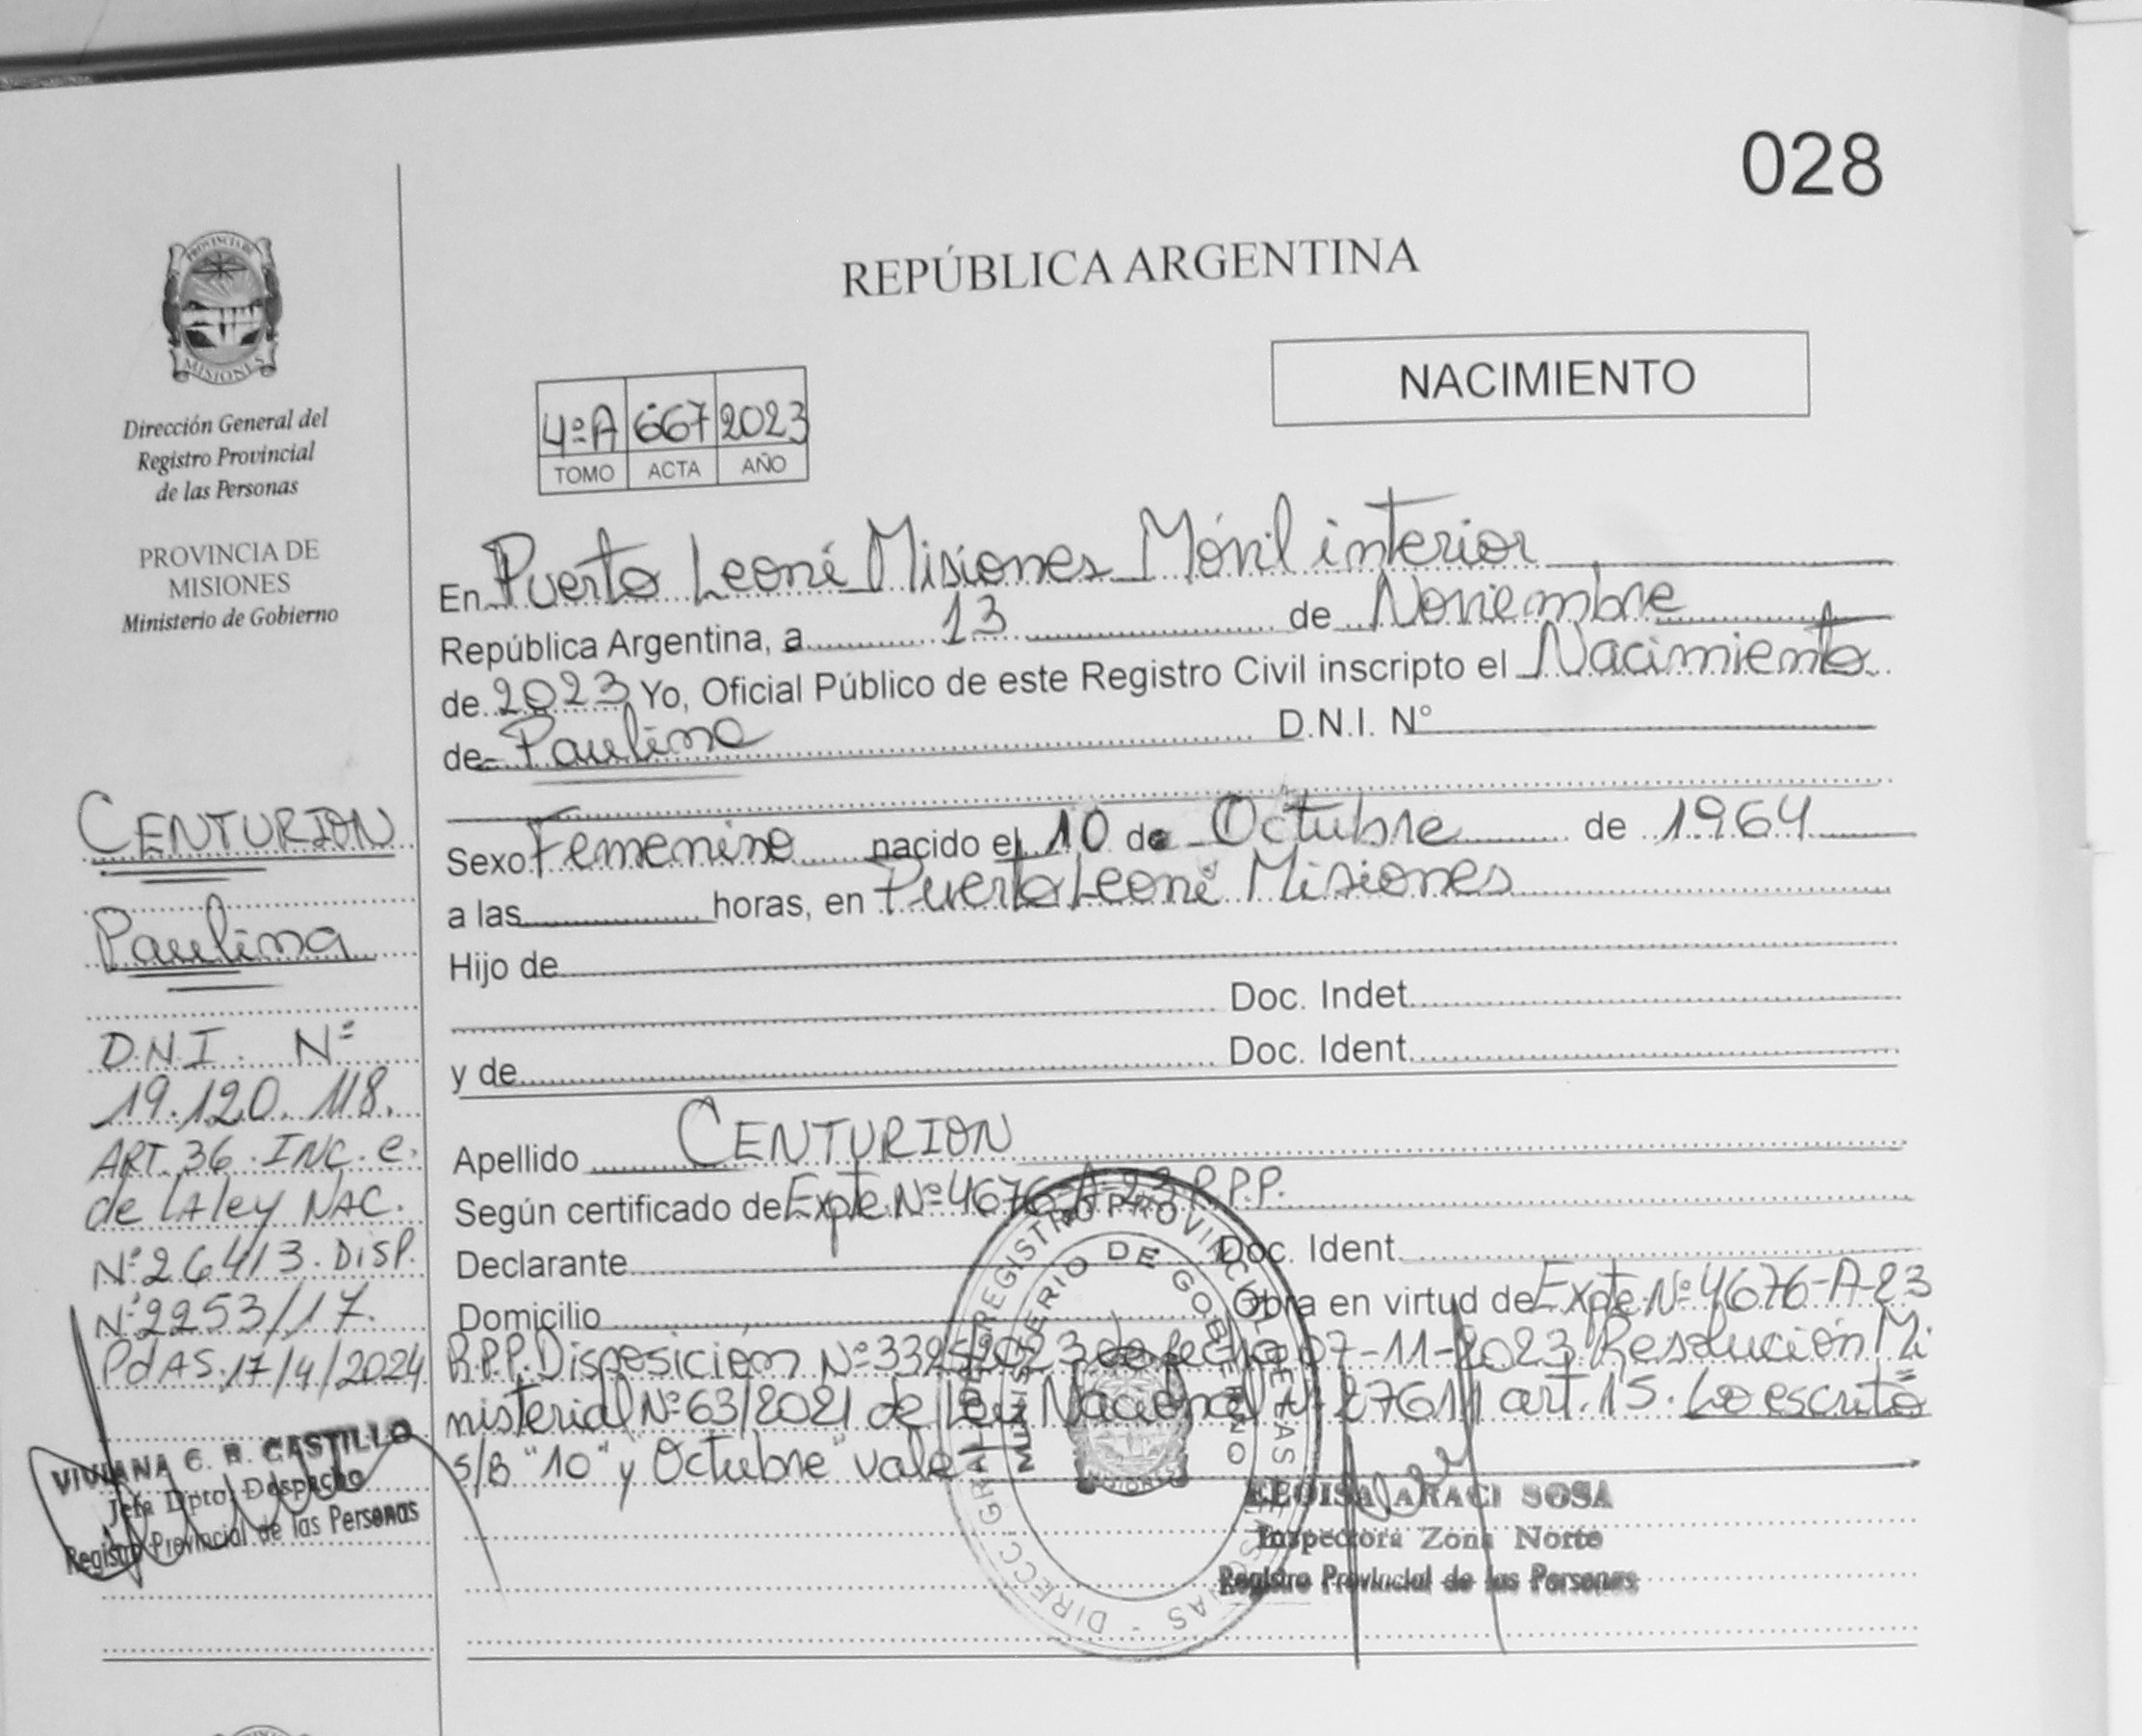 028
REPÚBLICA ARGENTINA
NACIMIENTO
PROVINCIA DE
MISIONES
Dirección General del
Registro Provincial
de las Personas
PROVINCIA DE
MISIONES
Ministerio de Gobierno
4º A 667 2023
TOMO ACTA AÑO
En Puerto Leoni Misiones Móvil interior
República Argentina, a 13 de Noviembre
de 2023 Yo, Oficial Público de este Registro Civil inscripto el Nacimiento
de Paulina D.N.I. N°
Sexo Femenino nacido el 10 de Octubre de 1964
a las horas, en Puerto Leoni Misiones
Hijo de
Doc. Indet.
y de Doc. Ident.
Apellido CENTURION
Según certificado de Expte Nº 4676-A-23 R.P.P.
Declarante Doc. Ident.
Domicilio Obra en virtud de Expte Nº 4676-A-23
R.P.P. Disposición Nº 3325/2023 de fecha 07-11-2023 Resolución Mi
nisterial Nº 63/2021 de Ley Nacional Nº 27611 art. 15. Lo escrito
s/B "10" y Octubre" vale
CENTURION
Paulina
D.N.I. Nº
19.120.118.
ART. 36. INC. e.
de LA ley NAC.
Nº 26413. DISP.
Nº 2253/17.
PdAS. 17/4/2024
VIVIANA C. R. CASTILLO
Jefa Dpto. Despacho
Registro Provincial de las Personas
DIRECC GRAL DE REGISTRO PROVINCIAL DE LAS PERSONAS
MINISTERIO DE GOBIERNO
MISIONES
ELOISA ARACI SOSA
Inspectora Zona Norte
Registro Provincial de las Personas